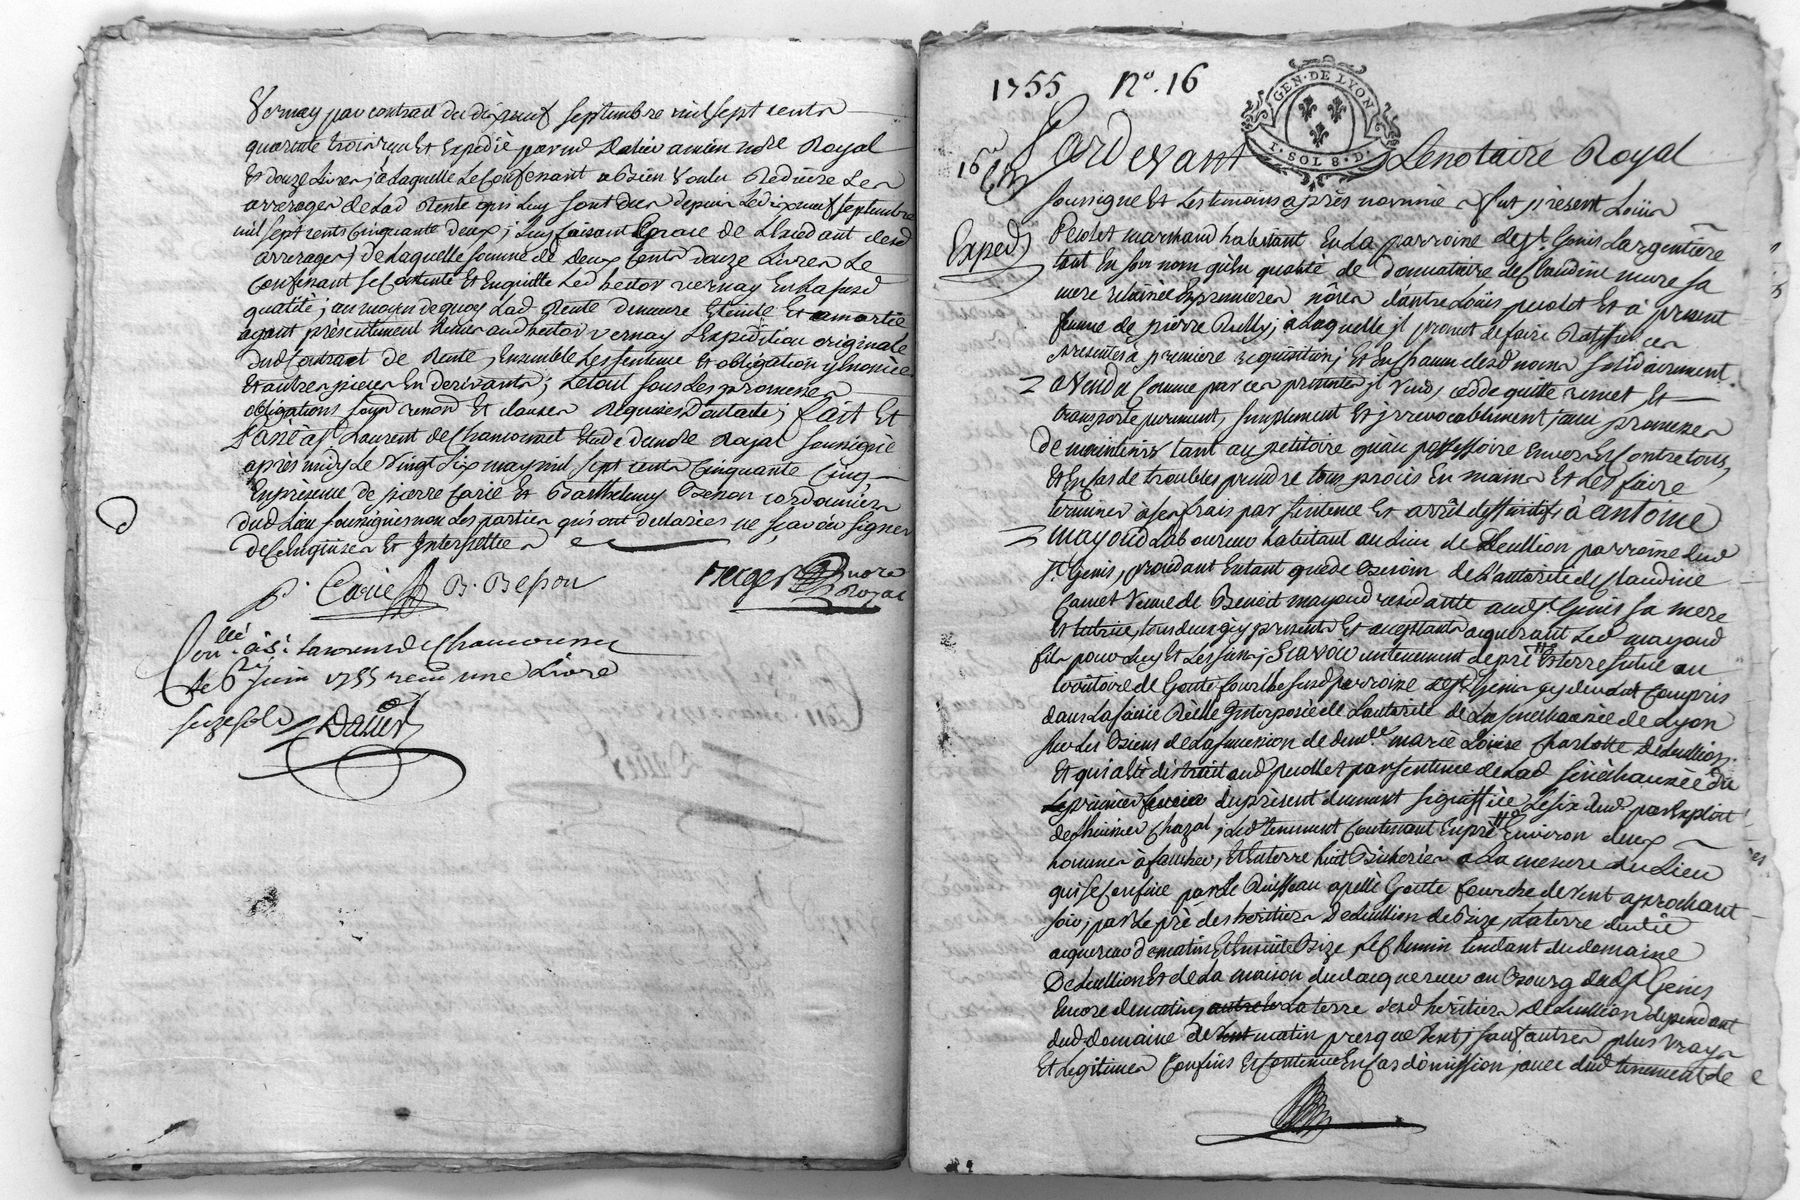 Vernay par contract du dixneuf septembre mil sept cents
quarente trois reçu Et expedié par me Dalier ancien nore Royal
Et douze Livres, à Laquelle Le Confessant a Bien voulu Reduire Les
arrerages de Lad Rente qui Luy sont dus depuis Le dixneuf septembre
mil sept cents cinquante deux; Luy faisant Grace de L'Exedant desd
arrerages; de Laquelle somme de Deux Cents douze Livres Le
Confessant se Contente et En quitte Led hector vernay En lad
qualité; au moyen de quoy Lad Rente demeure Eteinte Et amortie
ayant présentement Remis aud hector vernay L'Expédition originale
dud Contract de Rente, Ensemble Les sentence Et obligation y Enoncée
Et autres pieces En derivants; Le tout sous Les promesses
obligations soumd renond Et clauses Requises D'autade; fait Et
Passé à St Laurent de Chamousset Etude du nore Royal soussigné
après midy Le vingt six may mil sept cents Cinquante Cinq
En présence de pierre Carie Et Barthelemy Besson cordonnier
dud Lieu soussignés non Les parties qui ont declarées ne sçavoir signer
de Ce Enquises Et Interpellée
p. Carie B. Besson
nore
Royal
Conllé à St Laurent de Chamousset
Le 6 juin 1755 reçu une Livre
seize sols Dalier
1755 No. 16
GEN · DE LYON
1 · SOL 8 · D.
16
Pardevant Le notaire Royal
Exped
soussigné Et Les temoins après nommés fut présent Loüis
Perolet marchand habitant En La parroisse de St Genis Largentière
tant En son nom qu'En qualité de donnataire de Claudine mure sa
mere Relaissée En premières nôces d'autre Loüis perolet Et à présent
femme de pierre Rully; à Laquelle il promet de faire Ratifier ces
presentes à première requisition; Et En Chacun desd noms solidairement
a Vendu Comme par ces presentes il Vend, cedde quitte remet Et
transporte purement, simplement Et irrevocablement avec promesse
de maintenir tant au petitoire qu'au possessoire Envers Et Contre tous,
Et En Cas de troubles prendre tous procès En mains Et Les faire
terminer à ses frais par sentence Et arrêt deffinitif, à antoine
mayoud Laboureur habitant au Lieu de Lieullion parroisse dud
St Genis, procédant Entant que de Besoin de L'autorité de Claudine
Carret Veuve de Benoit mayoud residante aud St Genis sa mere
Et tutrice, tous deux icy presents Et acceptants acquerant Led mayoud
fils pour Luy Et Les siens; Scavoir un tenement de pré Et terre situé au
territoire de Goute fourche susd parroisse de St Genis cy devant Compris
dans La saisie Réelle Interposée de L'autorité de La senechaussée de Lyon
sur Les Biens de La succession de demlle marie Loüise Charlotte De Lieullion
Et qui a été distrait aud perollet par sentence de Lad sénéchaussée du
premier fevrier du present deument signiffiée Le six dud par Exploit
de L'huissier Chazal; Led tenement Contenant En pré Environ deux
hommes à faucher, Et En terre huit Bicherées à La mesure du Lieu
qui se Confine par Le Ruisseau apellé Goute fourche de vent aprochant
soir; par Le pré des héritiers De Lieullion de Bize, La terre dudit
acquereur de matin Et Ensuite Bize, Le Chemin tendant du domaine
De Lieullion Et de La maison dud acquereur au Bourg dud St Genis
Encore de matin; La terre desd héritiers De Lieullion dependant
dud domaine de matin presque Vent; sauf autres plus vrays
Et Légitimes Confins Et Contenue En Cas d'omission, avec dud tenement de